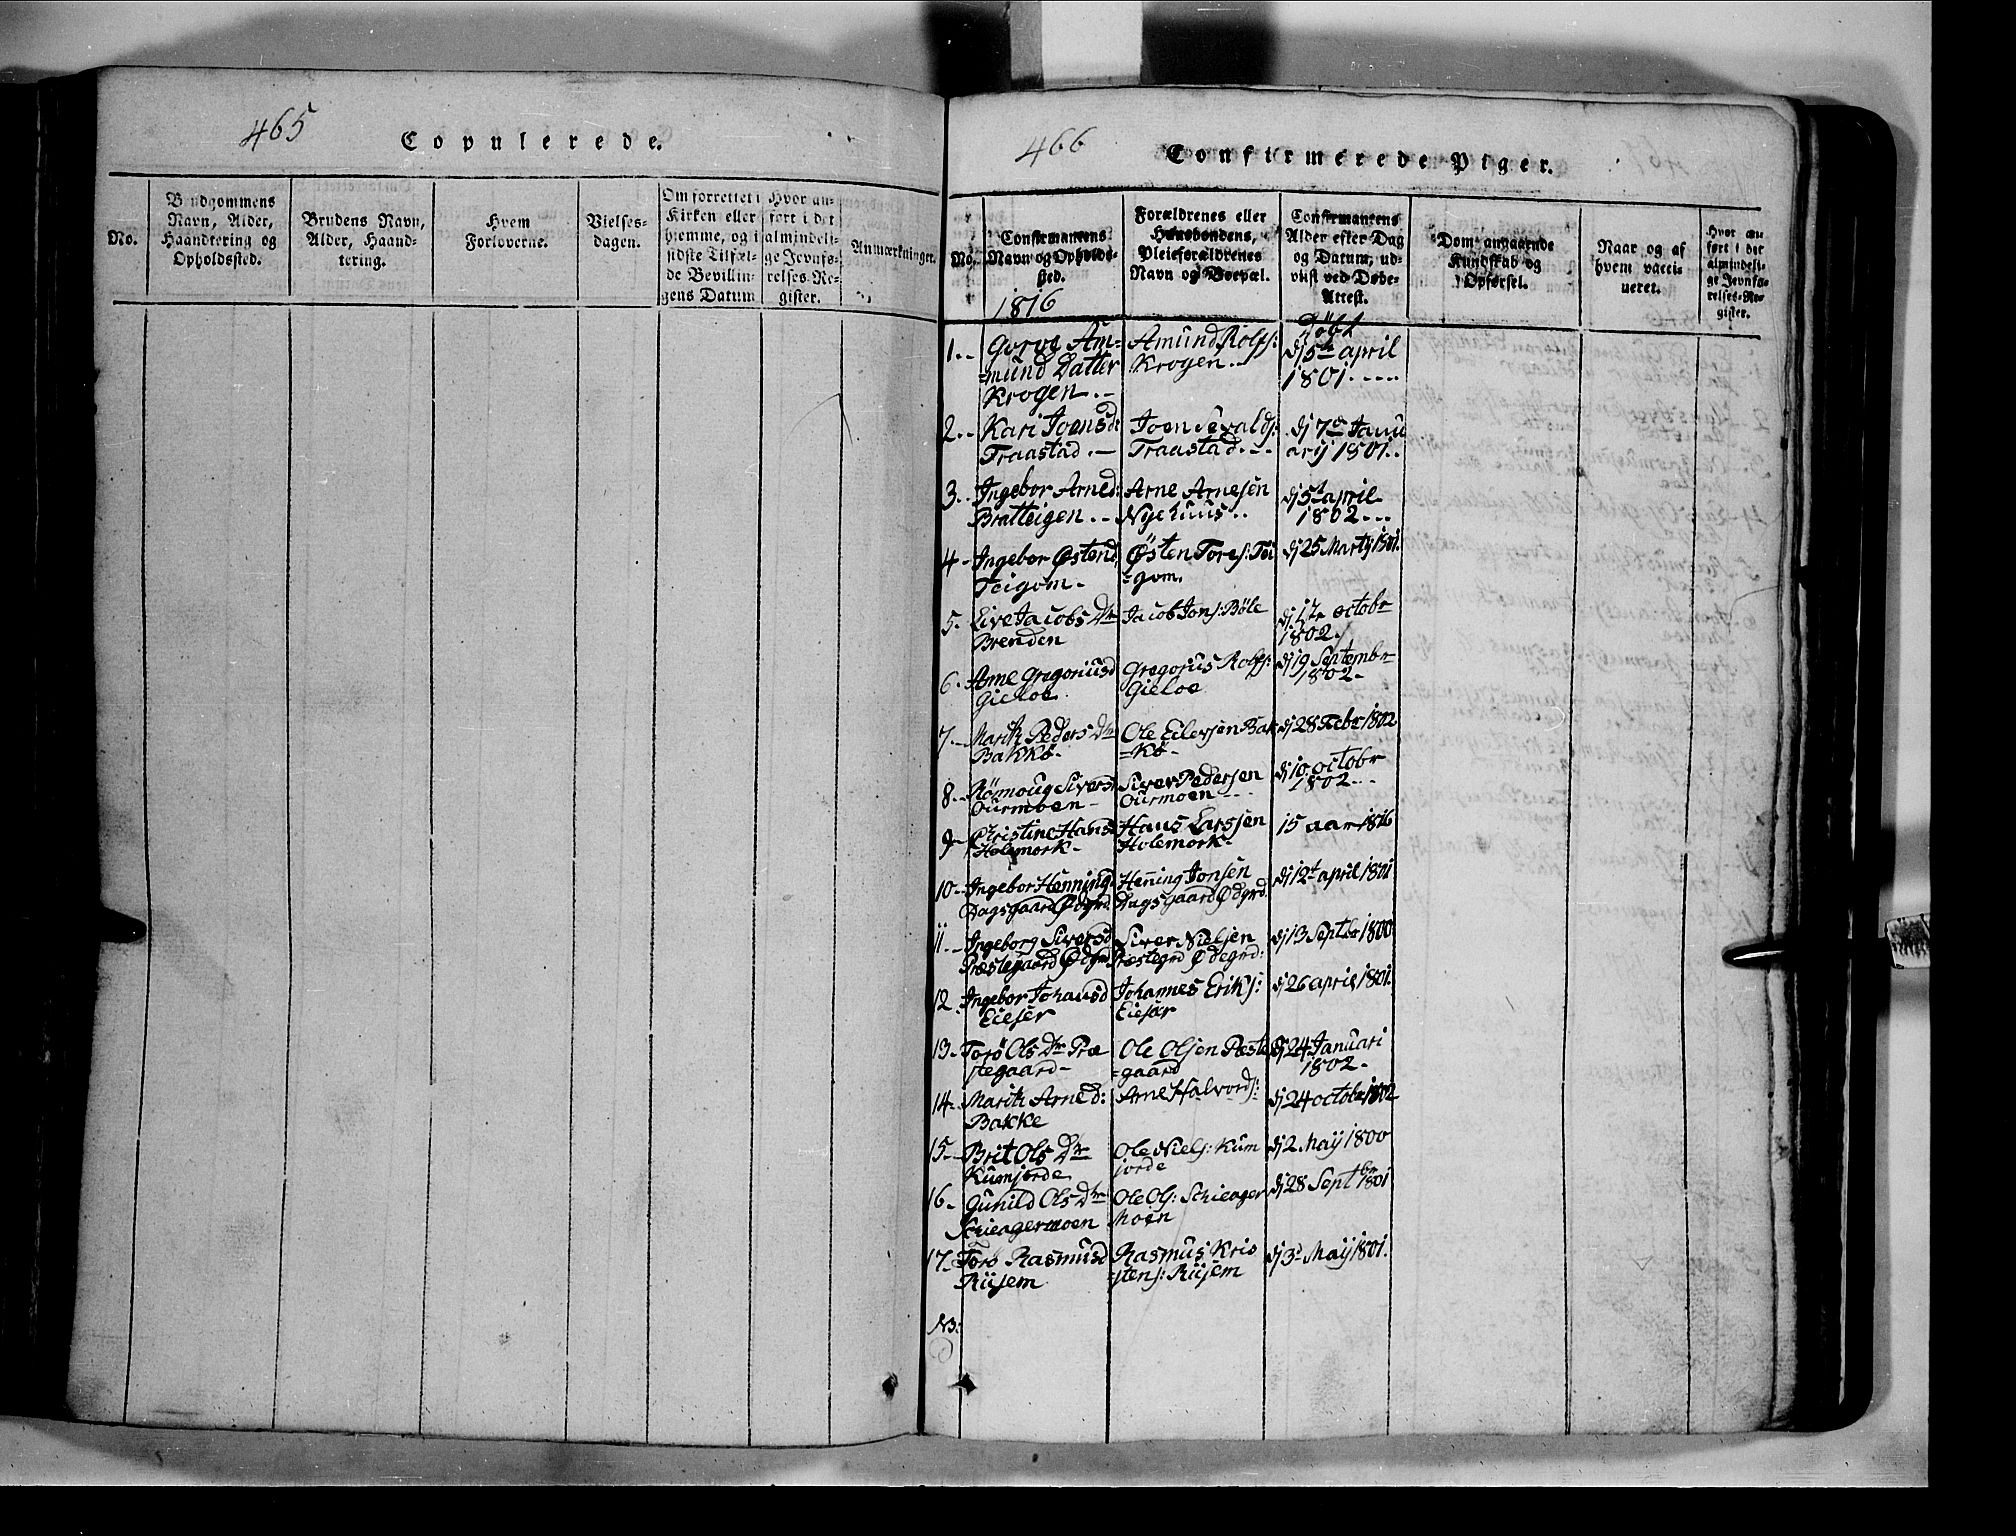 465
Copulerede.
No.
Brudgommens
Navn, Alder,
Haandtering og
Opholdssted.
Brudens Navn,
Alder, Haand-
tering.
Hvem
Forloverne.
Vielses-
dagen.
Om forrettet i
Kirken eller
hjemme, og i
sidste Tilfæl-
de Bevillin-
gens Datum
Hvor an-
ført i det
almindeli-
ge Jevnfø-
relses-Re-
gister.
Anmærkninger.
466
Confirmerede Piger.
No.
Confirmantens
Navn og Opholds-
sted.
1816
Forældrenes eller
Huusbondens,
Pleieforældrenes
Navn og Boepæl.
Confirmantens
Alder efter Dag
og Datum, ud-
viist ved Døbe-
Attest.
Døbt
Dom angaaende
Kundskab og
Opførsel.
Naar og af
hvem vacci-
neret.
Hvor an-
ført i det
almindeli-
ge Jevnfø-
relses-Re-
gister.
1. Gorve Am=
=mund Datter
Krogen.
Amund Rolfs:
Krogen.
dj 5te april
1801
2. Kari Joensd:
Traastad.
Joen Sevalds:
Traastad.
dj 7de Janu
arij 1801.
3. Ingebor Arned:
Bratteigen.
Arne Arnesen
Nyehuus
dj 5t april
1802
4. Ingebor Østend.
Teigom.
Østen Tores: Tei
=gom.
dj 25 Martij 1801.
5. Live Jacobs Dtr
Brenden
Jacob Jons: Böle
dj 1te octobr
1802.
6. Anne Gregoriusd
Gieloe
Gregorius Rolfs:
Gieloe
dj 19 Septembr
1802.
7. Marit Peders Dtr
Bakkö.
Ole Eilevsen Bak
=kö.
dj 28 Febr 1802
8. Römoug Sivers
Ourmoen
Siver Pedersen
Ourmoen
dj 10 octobr
1802
9. Christine Hans
Holemork.
Hans Larssen
Holemork.
15 aar 1816
10. Ingebor Henning.
Dagsgaard Ødgrd.
Henning Jonsen
Dagsgaard Ødgrd.
dj 12t april 1801
11. Ingeborg Siversd
Præstegaard Ødgrd
Siver Nielsen
Præstegrd Ødegrd:
dj 13 Septbr 1800
12. Ingebor Johansd
Eieser
Johannes Eriks:
Eiesar
dj 26 april 1801.
13. Torö Ols Dtr Præ
stegaard
Ole Olsen Præste
=gaard
dj 24 Januari
1802.
14. Marit Arned:
Bakke
Arne Halvords:
dj 24 octobr 1802
15. Brit Ols Dtr
Kumjorde
Ole Niels: Kum
jorde
dj 2 Maij 1800
16. Gunild Ols Dtr
Schieagermoen
Ole Ols: Schieager
Moen
dj 28 Septbr 1801
17. Torö Rasmusd
Riisem
Rasmus Kris
=stens: Riisem
dj 3d Maij 1801.
NB: